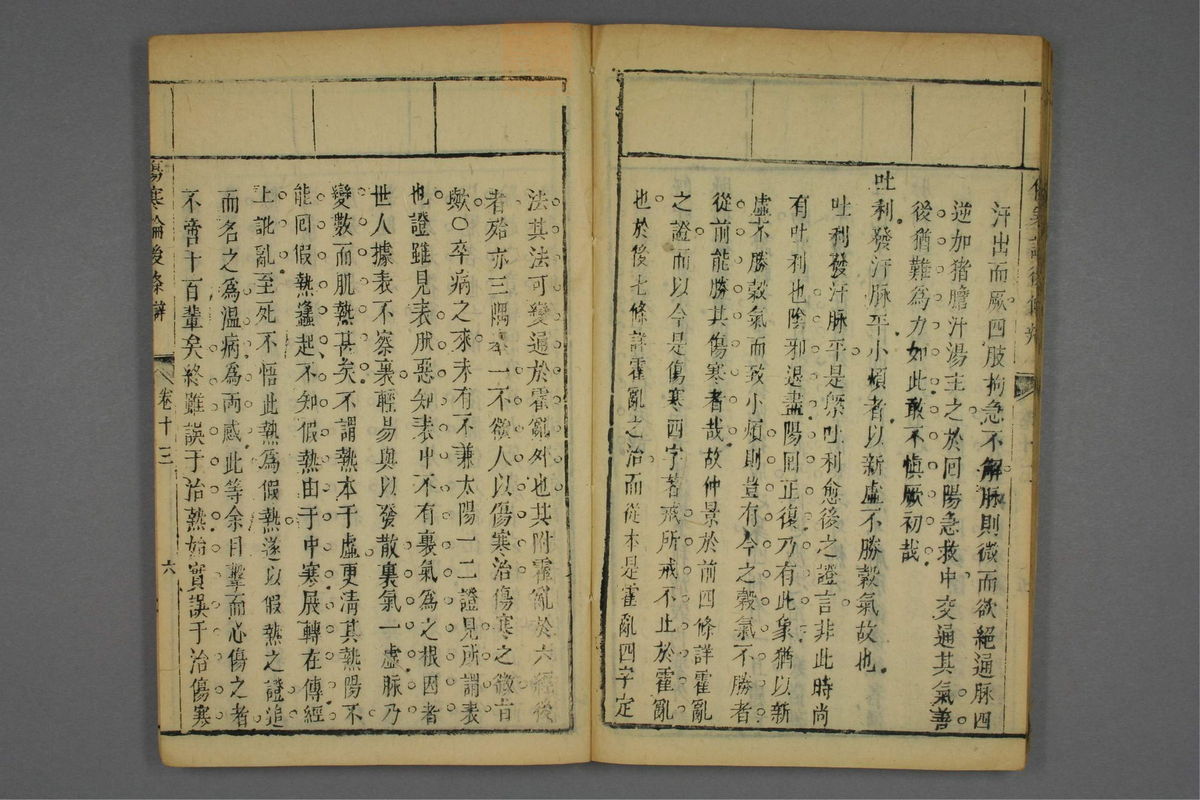 汗出而厥四肢拘急不解脉則微而欲絕通脉四
逆加猪膽汁湯主之於回陽急救中交通其氣善
後猶難為力如此敢不慎厥初哉
吐利發汗脉平小煩者以新虛不勝穀氣故也
吐利發汗脉平是原吐利愈後之證言非此時尚
有吐利也陰邪退盡陽回正復乃有此象猶以新
虛不勝穀氣而致小煩則豈有今之穀氣不勝者
從前能勝其傷寒者哉故仲景於前四條詳霍亂
之證而以今是傷寒四字著戒所戒不止於霍亂
也於後七條詳霍亂之治而從本是霍亂四字定
法其法可變通於霍亂外也其附霍亂於六經後
者殆亦三隅一不欲人以傷寒治傷寒之微旨
歟○卒病之來未有不兼太陽一二證見所謂表
也證雖見表脈惡知表中不有裏氣為之根因者
世人據表不察裏輕易與以發散裏氣一虛脉乃
變數而肌熱甚矣不謂熱本于虛更清其熱陽不
能回假熱蠭起不知假熱由于中寒展轉在傳經
上訛亂至死不悟此熱為假熱遂以假熱之證追
而名之為溫病為兩感此等余目擊而心傷之者
不啻十百輩矣終難誤于治熱始實誤于治傷寒
傷寒論後條辯
卷十三
六